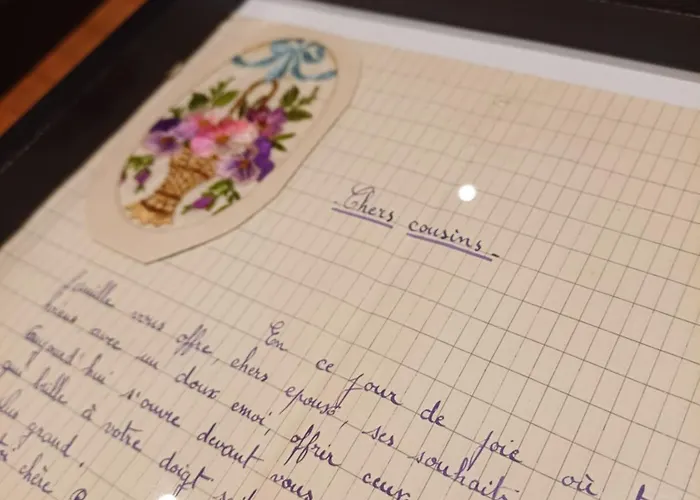 Chers cousins.
En ce jour de joie où
famille vous offre, chers epoux, ses souhaits
avec un doux emoi, offrir ceux
Aujourd'hui s'ouvre devant vous
qui brille à votre doigt
plus grand.
chère